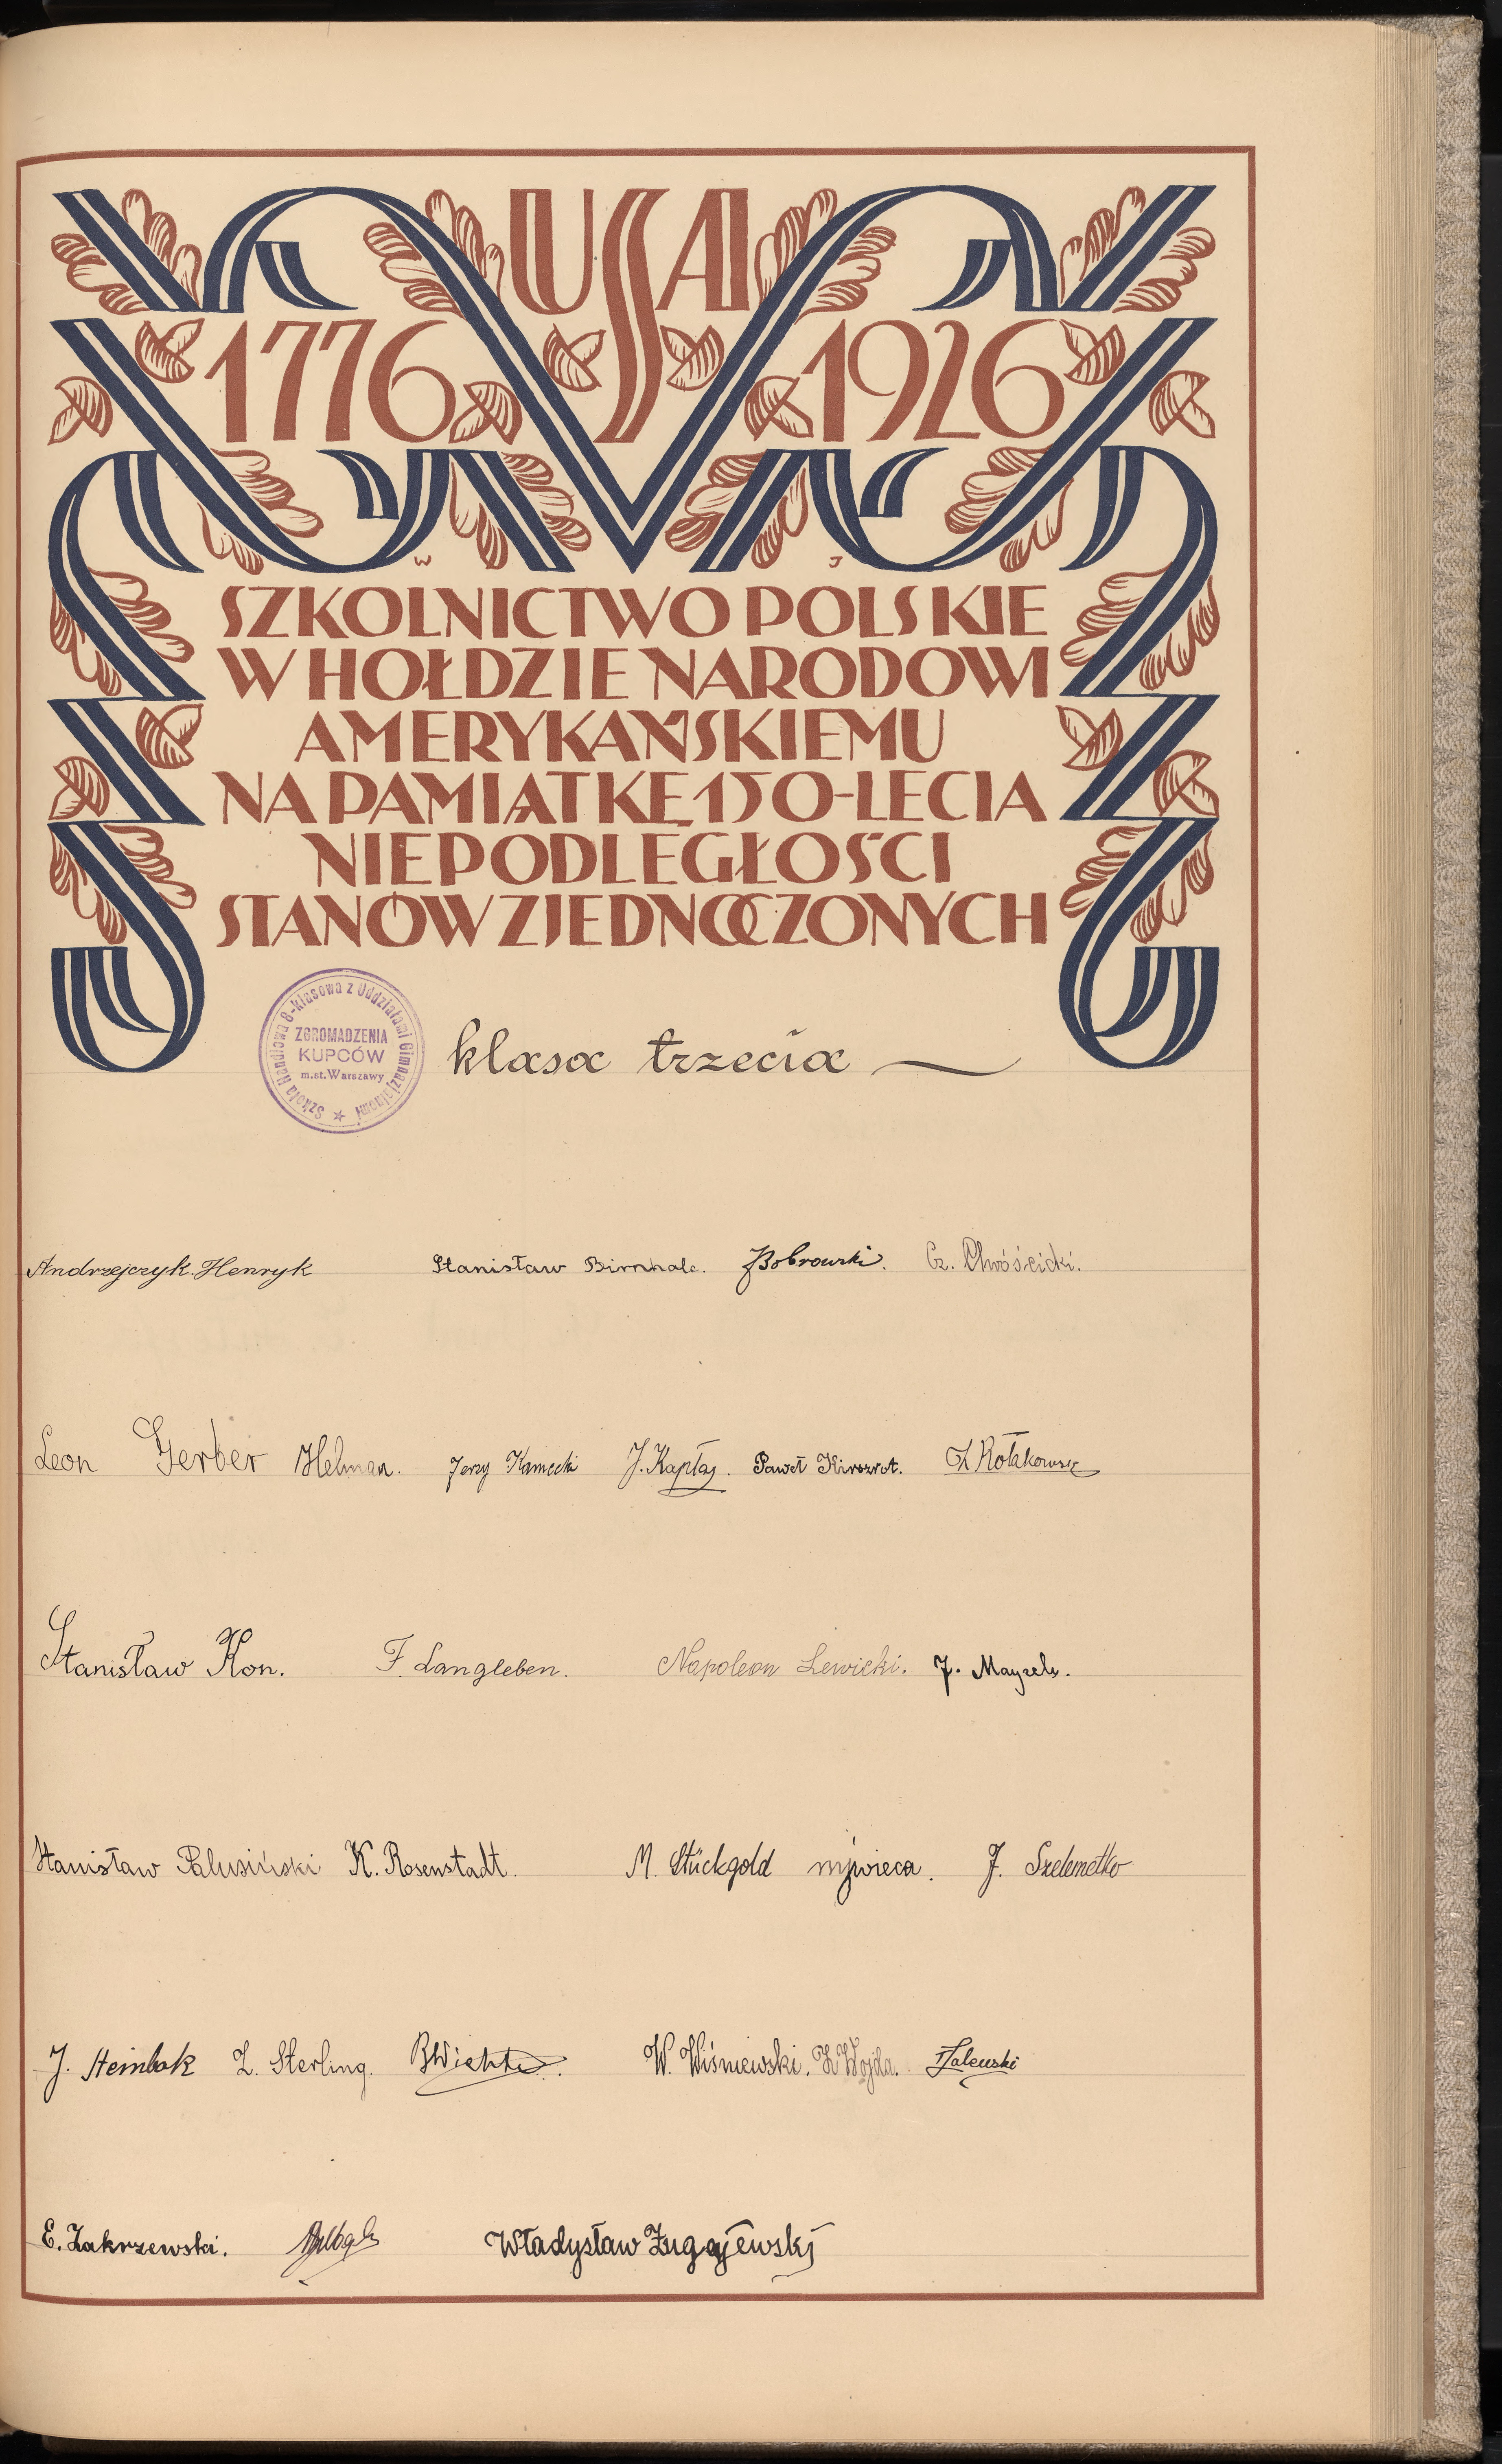 USA
1776 1926
W J
SZKOLNICTWO POLSKIE
W HOŁDZIE NARODOWI
AMERYKAŃSKIEMU
NA PAMIĄTKĘ 150-LECIA
NIEPODLEGŁOŚCI
STANÓW ZJEDNOCZONYCH
Szkoła Handlowa 8-klasowa z Oddziałami Gimnazjalnemi
ZGROMADZENIA
KUPCÓW
m.st. Warszawy
klasa trzecia
Andrzejczyk Henryk Stanisław Bobrowski. Cz. Chwóścicki.
Leon Gerber Helman. Jerzy Kamecki J. Kapłaj. Paweł Kirszrot.
Stanisław Kon. F. Langleben. Napoleon Lewicki. J. Mayzels.
Stanisław Palusiński K. Rosenstadt. M. Stückgold J. Szelemetko
J. Steinbok Z. Sterling. W. Wiśniewski. Z Wojda. Zalewski
E. Zakrzewski. Władysław Zugajewski